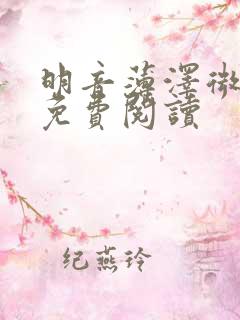 明音薄澤微
免費閱讀
纪燕玲